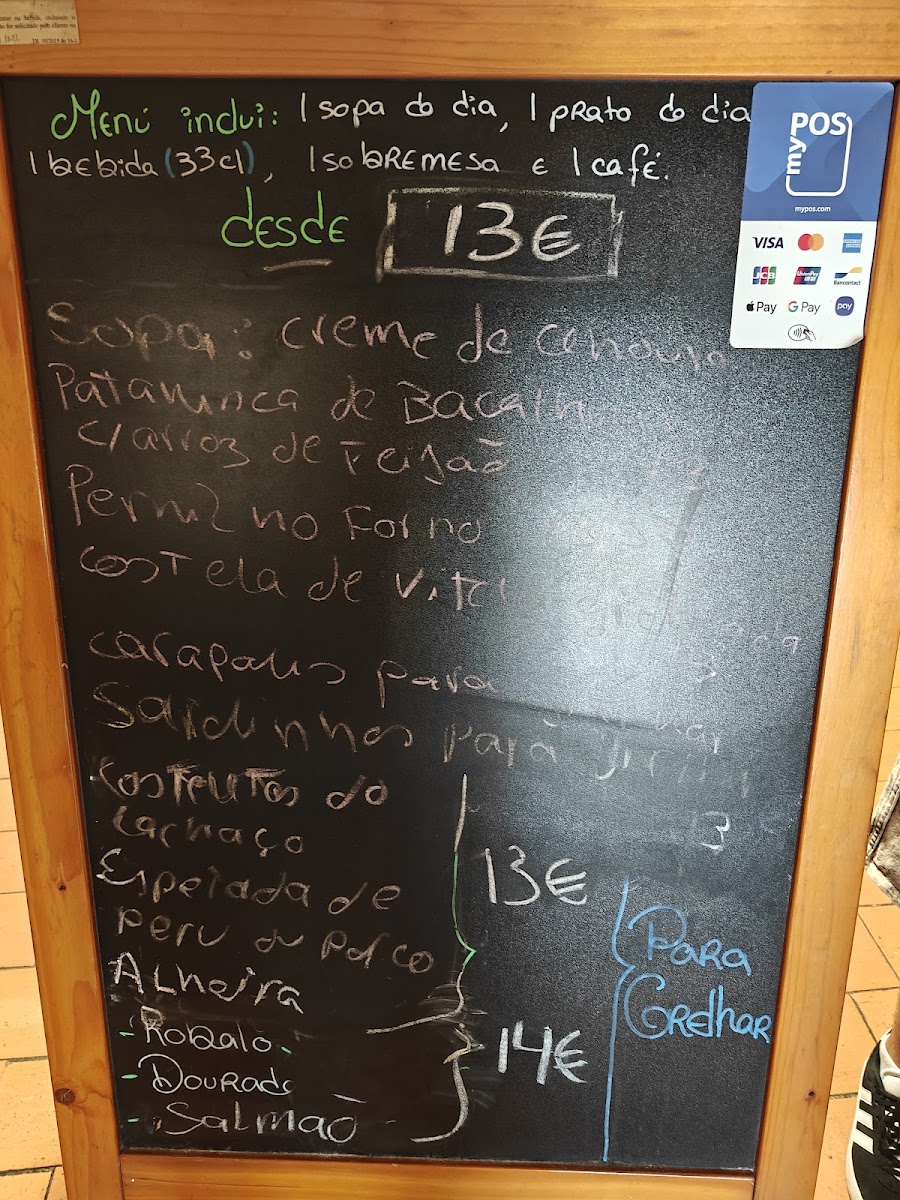 Menú inclui: 1 sopa do dia, 1 prato do dia
1 bebida (33cl), 1 sobremesa e 1 café.
desde 13€
Sopa: creme de cenoura
Pataninca de Bacalh
c/arroz de Feijão
Pernil no Forno
costela de vitela
carapaus para
Sardinhas para
Kosteletas do
cachaço
Espetada de
peru ou porco
Alheira
13€
- Robalo
- Dourada
- Salmaõ
14€
Para
Grelhar
myPOS
mypos.com
VISA
AMERICAN EXPRESS
JCB
UnionPay
Bancontact
Pay
G Pay
pay